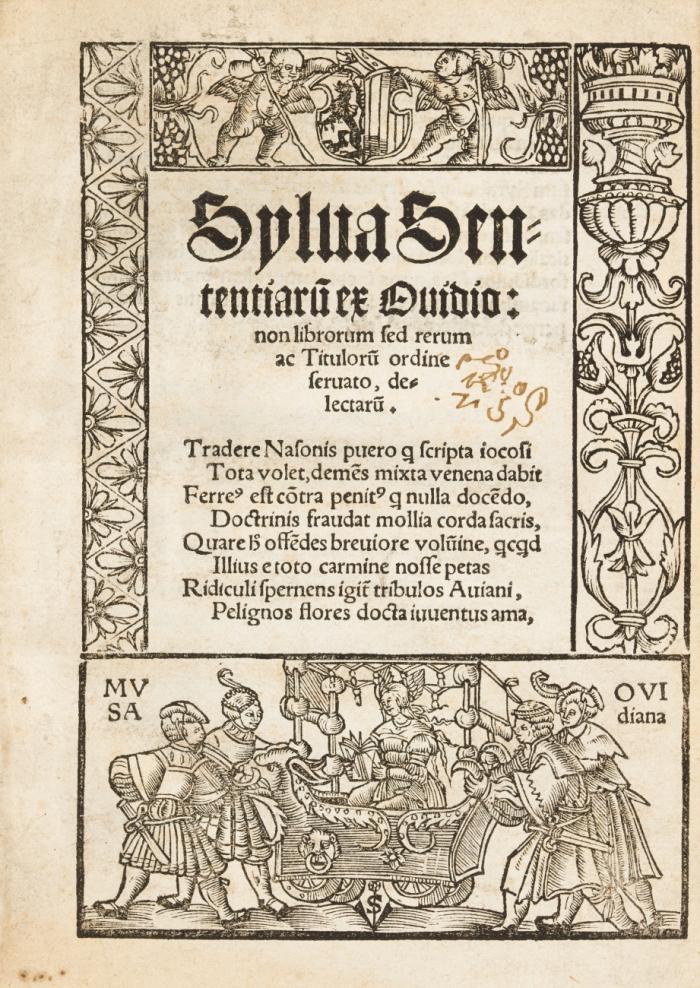 Sylua Sen⸗
tentiarū ex Ouidio:
non librorum ſed rerum
ac Titulorū ordine
ſeruato, de⸗
lectarū.
Tradere Naſonis puero q̄ ſcripta iocoſi
Tota volet, demēs mixta venena dabit
Ferreꝰ eſt cōtra penitꝰ q̄ nulla docēdo,
Doctrinis fraudat mollia corda ſacris,
Quare offēdes breviore volūine,
Illius e toto carmine noſſe petas
Ridiculi ſpernens igit᷑ tribulos Aviani,
Pelignos flores docta iuventus ama,
MV
SA
OVI
diana